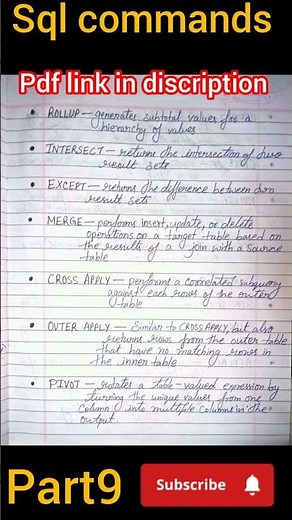 Sql commands
Pdf link in discription
• ROLLUP – generates subtotal values for a
hierarchy of values
• INTERSECT – returns the intersection of two
result sets
• EXCEPT – returns the difference between two
result sets
• MERGE – performs insert, update, or delete
operations on a target table based on
the results of a join with a source
table
• CROSS APPLY – performs a correlated subquery
against each row of the outer
table
• OUTER APPLY – Similar to CROSS APPLY, but also
returns rows from the outer table
that have no matching rows in
the inner table
• PIVOT – rotates a table-valued expression by
turning the unique values from one
column into multiple columns in the
output.
Part9
Subscribe